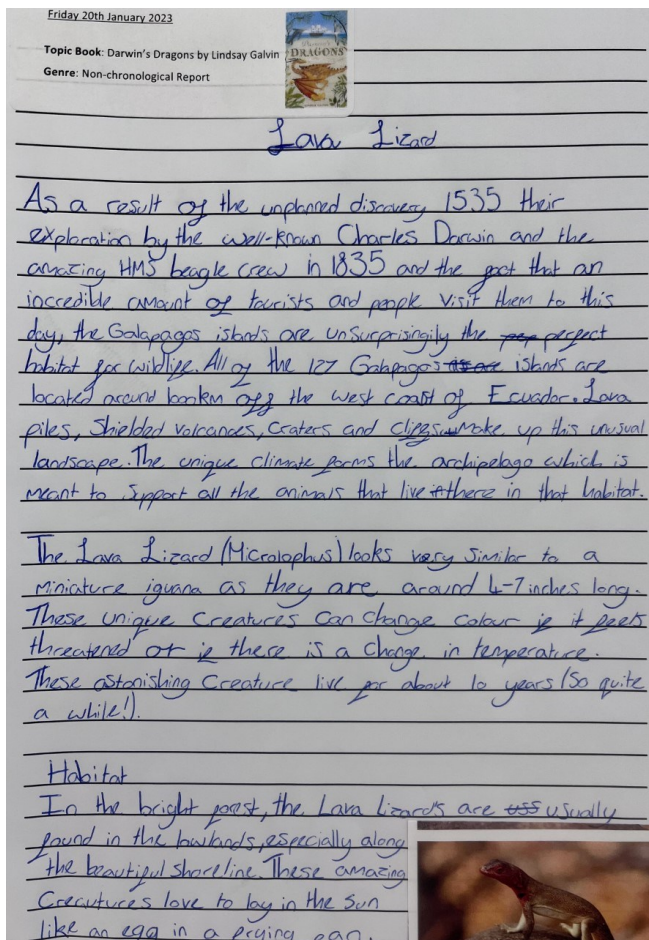 Friday 20th January 2023
Topic Book: Darwin's Dragons by Lindsay Galvin
Genre: Non-chronological Report
DRAGONS
Lava Lizard
As a result of the unplanned discovery 1535 their
exploration by the well-known Charles Darwin and the
amazing HMS beagle crew in 1835 and the fact that an
incredible amount of tourists and people visit them to this
day, the Galapagos islands are unsurprisingily the perfect
habitat for wildlife. All of the 127 Galapagos islands are
located around 600km off the west coast of Ecuador. Lava
piles, Shielded volcanoes, Craters and cliffs make up this unusual
landscape. The unique climate forms the archipelago which is
meant to support all the animals that live there in that habitat.
The Lava Lizard (Microlophus) looks very similar to a
miniature iguana as they are around 4-7 inches long.
These unique Creatures can change colour if it feels
threatened or if there is a change in temperature.
These astonishing Creature live for about 10 years (So quite
a while!).
Habitat
In the bright forest, the Lava Lizards are usually
found in the lowlands, especially along
the beautiful shoreline. These amazing
Creautures love to lay in the sun
like an egg in a frying pan.